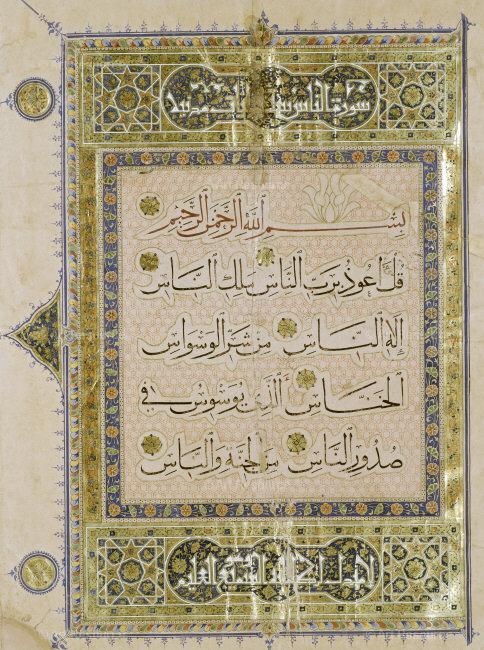 سورة الناس
بسم الله الرحمن الرحيم
قل أعوذ برب الناس ملك الناس
إله الناس من شر الوسواس
الخناس الذي يوسوس في
صدور الناس من الجنة والناس
السميع العليم